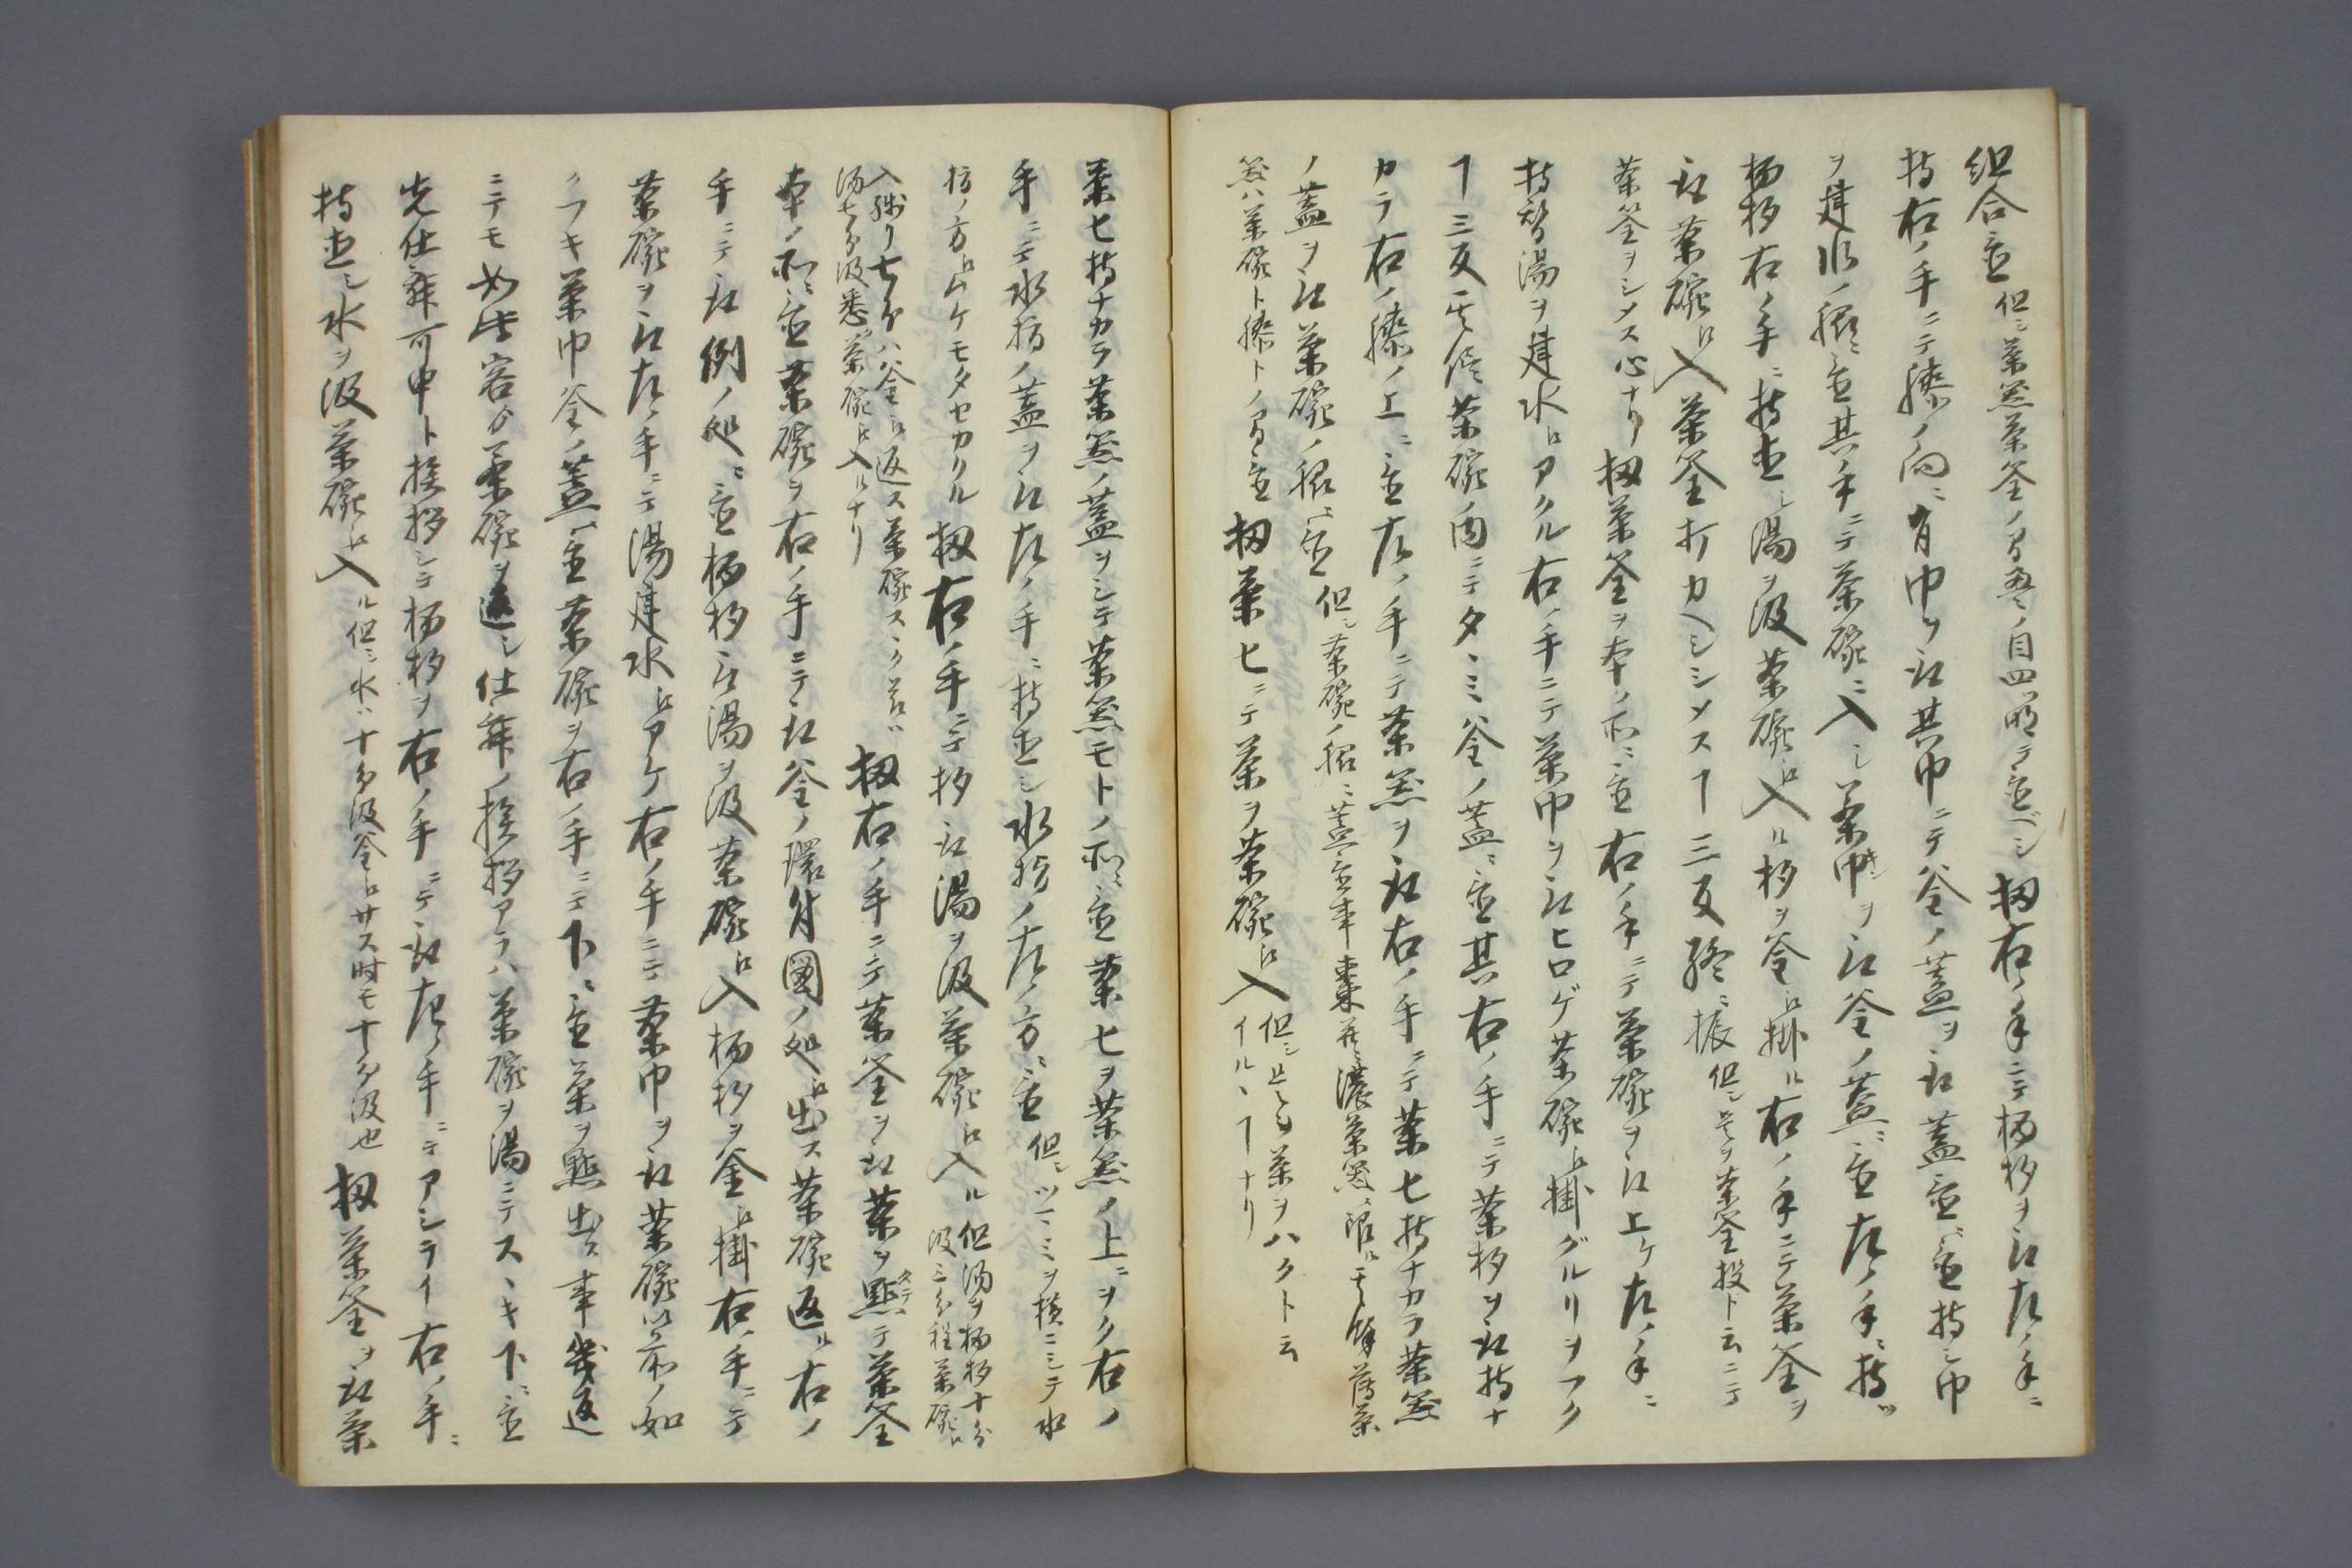 組合置 但シ茶笂茶筌ノ間疊ノ目四ツ明テ置ベシ 扨右ノ手ニテ柄杓ヲ取左ノ手ニ
持右ノ手ニテ膝ノ向ニ有巾ヲ取其巾ニテ釜ノ蓋ヲ取蓋置ニ置持シ巾
ヲ建水ノ脇ニ置其手ニテ茶碗ニ入シ茶巾ヲ取釜ノ蓋ニ置左ノ手ニ持ツ
柄杓右ノ手ニ持直シ湯ヲ汲茶碗ニ入ル杓ヲ釜ニ掛ル右ノ手ニテ茶筌ヲ
取茶碗ニ入茶筌打カヘシシメスヿ三反終ニ振 但シ是ヲ茶筌投ト云ニテ
茶筌ヲシメス心ナリ 扨茶筌ヲ本ノ所ニ置右ノ手ニテ茶碗ヲ取上ケ左ノ手ニ
持替湯ヲ建水ニアクル右ノ手ニテ茶巾ヲ取ヒロゲ茶碗ニ掛グルリヲフク
ヿ三反其侭茶碗ノ内ニテタヽミ釜ノ蓋ニ置其右ノ手ニテ茶杓ヲ取持ナ
カラ右ノ膝ノ上ニ置左ノ手ニテ茶笂ヲ取右ノ手ニテ茶七持ナカラ茶笂
ノ蓋ヲ取茶碗ノ脇ニ置 但シ茶碗ノ脇ニ蓋置事棗并ニ濃茶笂ニ限ル其餘薄茶
笂ハ茶碗ト膝トノ間ニ置 扨茶七ニテ茶ヲ茶碗ニ入 但シ是ヲ茶ヲハクト云
イルヽヿナリ
茶七持ナカラ茶笂ノ蓋ヲシテ茶笂モトノ所ニ置茶七ヲ茶笂ノ上ニヲク右ノ
手ニテ水指ノ蓋ヲ取左ノ手ニ持直シ水指ノ左ノ方ニ置 但シツマミヲ横ニシテ水
指ノ方ニムケモタセカクル 扨右ノ手ニテ杓取湯ヲ汲茶碗ニ入ル 但湯ヲ柄杓十分
汲三分程茶碗ニ
入残リ七分ハ釜ニ返ス茶碗スヽク節ハ
湯七分汲悉ク茶碗ニ入ルナリ 扨右ノ手ニテ茶筌ヲ取茶ヲ點テ茶筌
本ノ所ニ置茶碗ヲ右ノ手ニテ取釜ノ環付圖ノ処ニ出ス茶碗返ル右ノ
手ニテ取例ノ処ニ置柄杓ニテ湯ヲ汲茶碗ニ入柄杓ヲ釜ニ掛右ノ手ニテ
茶碗ヲ取左ノ手ニテ湯建水ニアケ右ノ手ニテ茶巾ヲ取茶碗以前ノ如
クフキ茶巾釜ノ蓋ニ置茶碗ヲ右ノ手ニテ下ニ置茶ヲ點出ス事幾返
ニテモ如此客ゟ茶碗ヲ返シ仕舞ノ挨拶アラハ茶碗ヲ湯ニテスヽキ下ニ置
先仕舞可申ト挨拶シテ柄杓ヲ右ノ手ニテ取左ノ手ニテアシライ右ノ手ニ
持直シ水ヲ汲茶碗ニ入ル 但シ水ハ十分汲釜ニサス時モ十分汲也 扨茶筌ヲ取茶